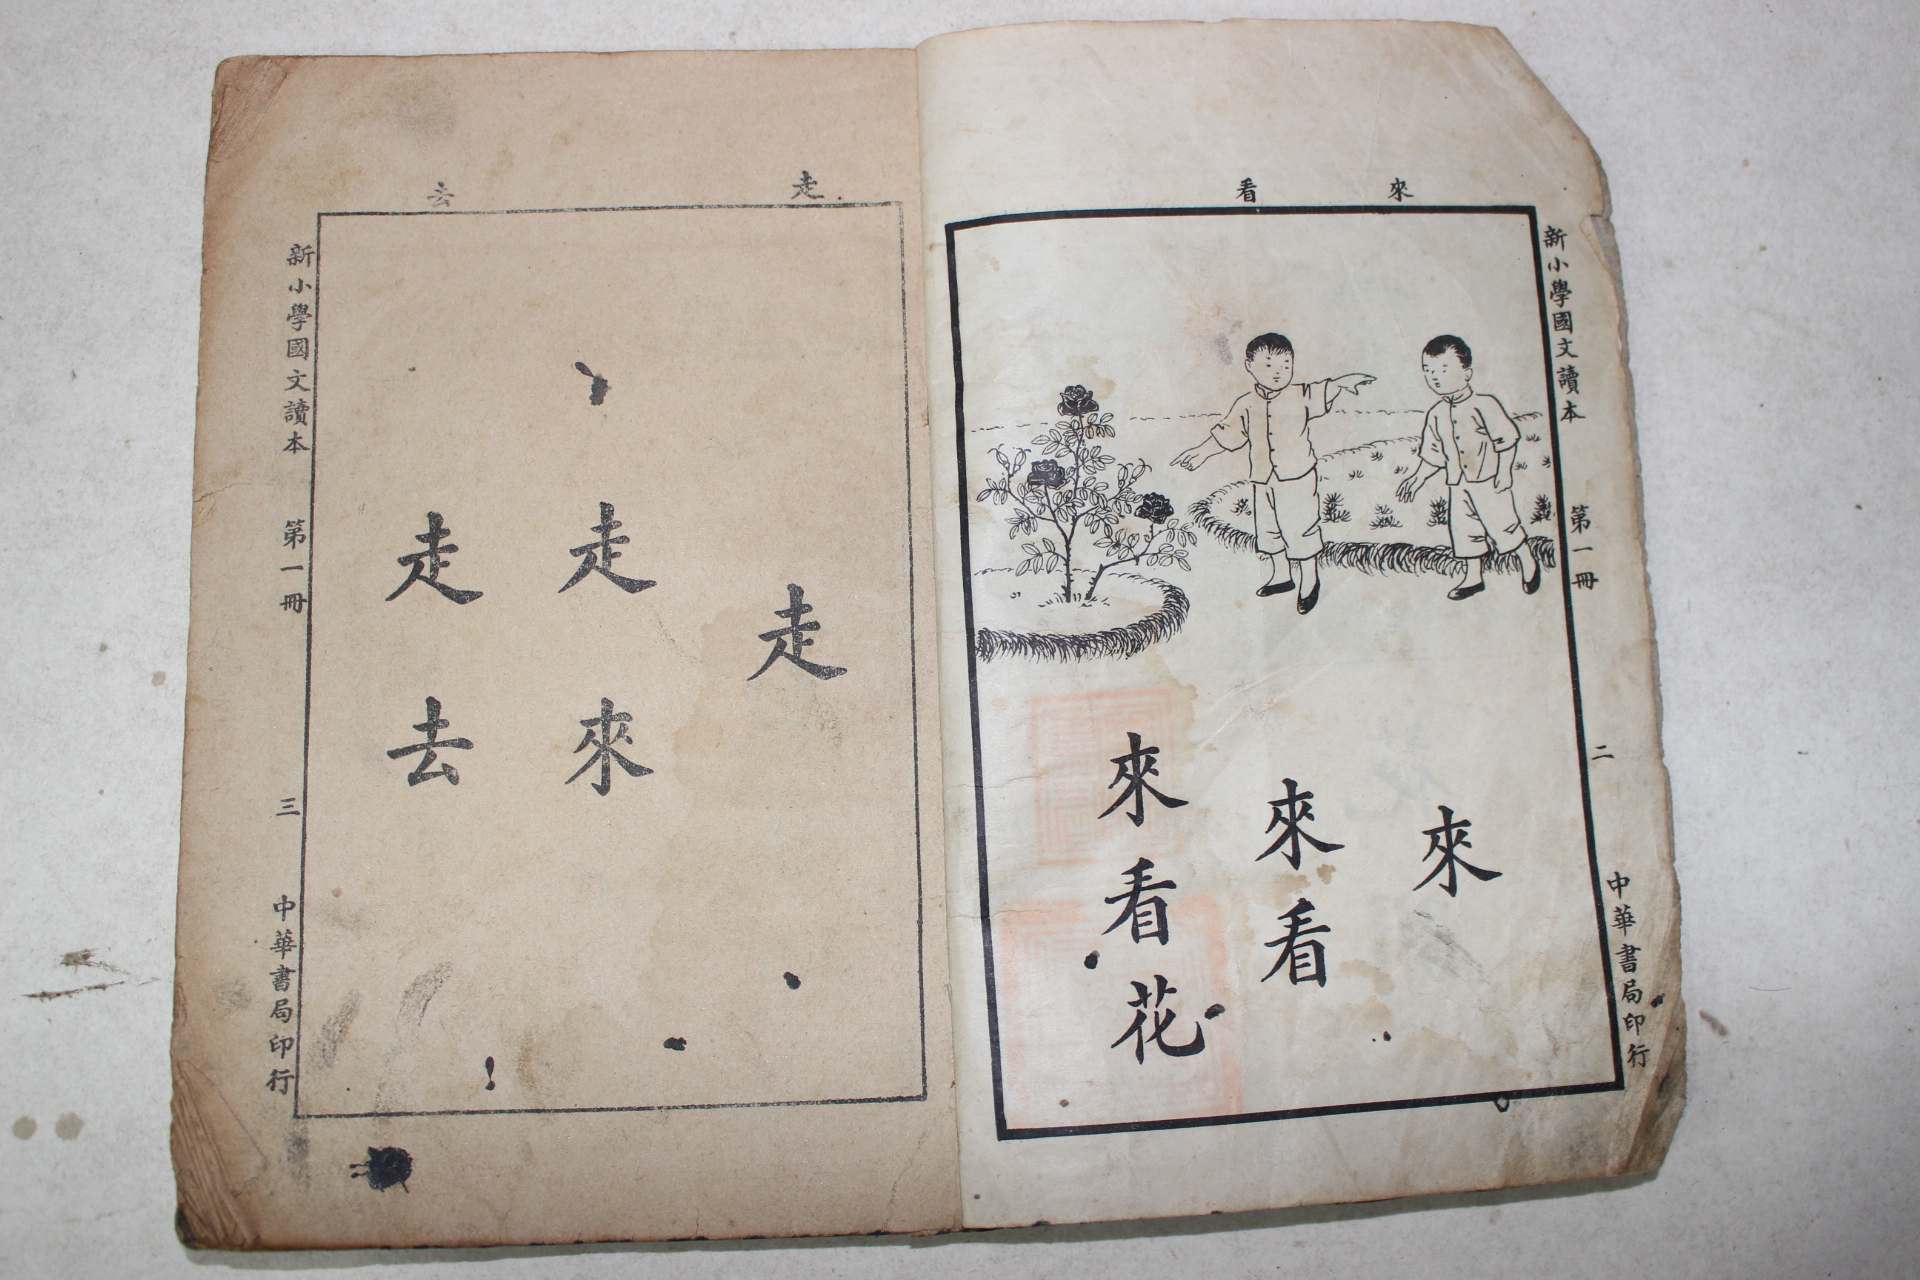 來
看
新小學國文讀本 第一冊 二 中華書局印行
來
來看
來看花
走
去
走
走來
走去
新小學國文讀本 第一冊 三 中華書局印行